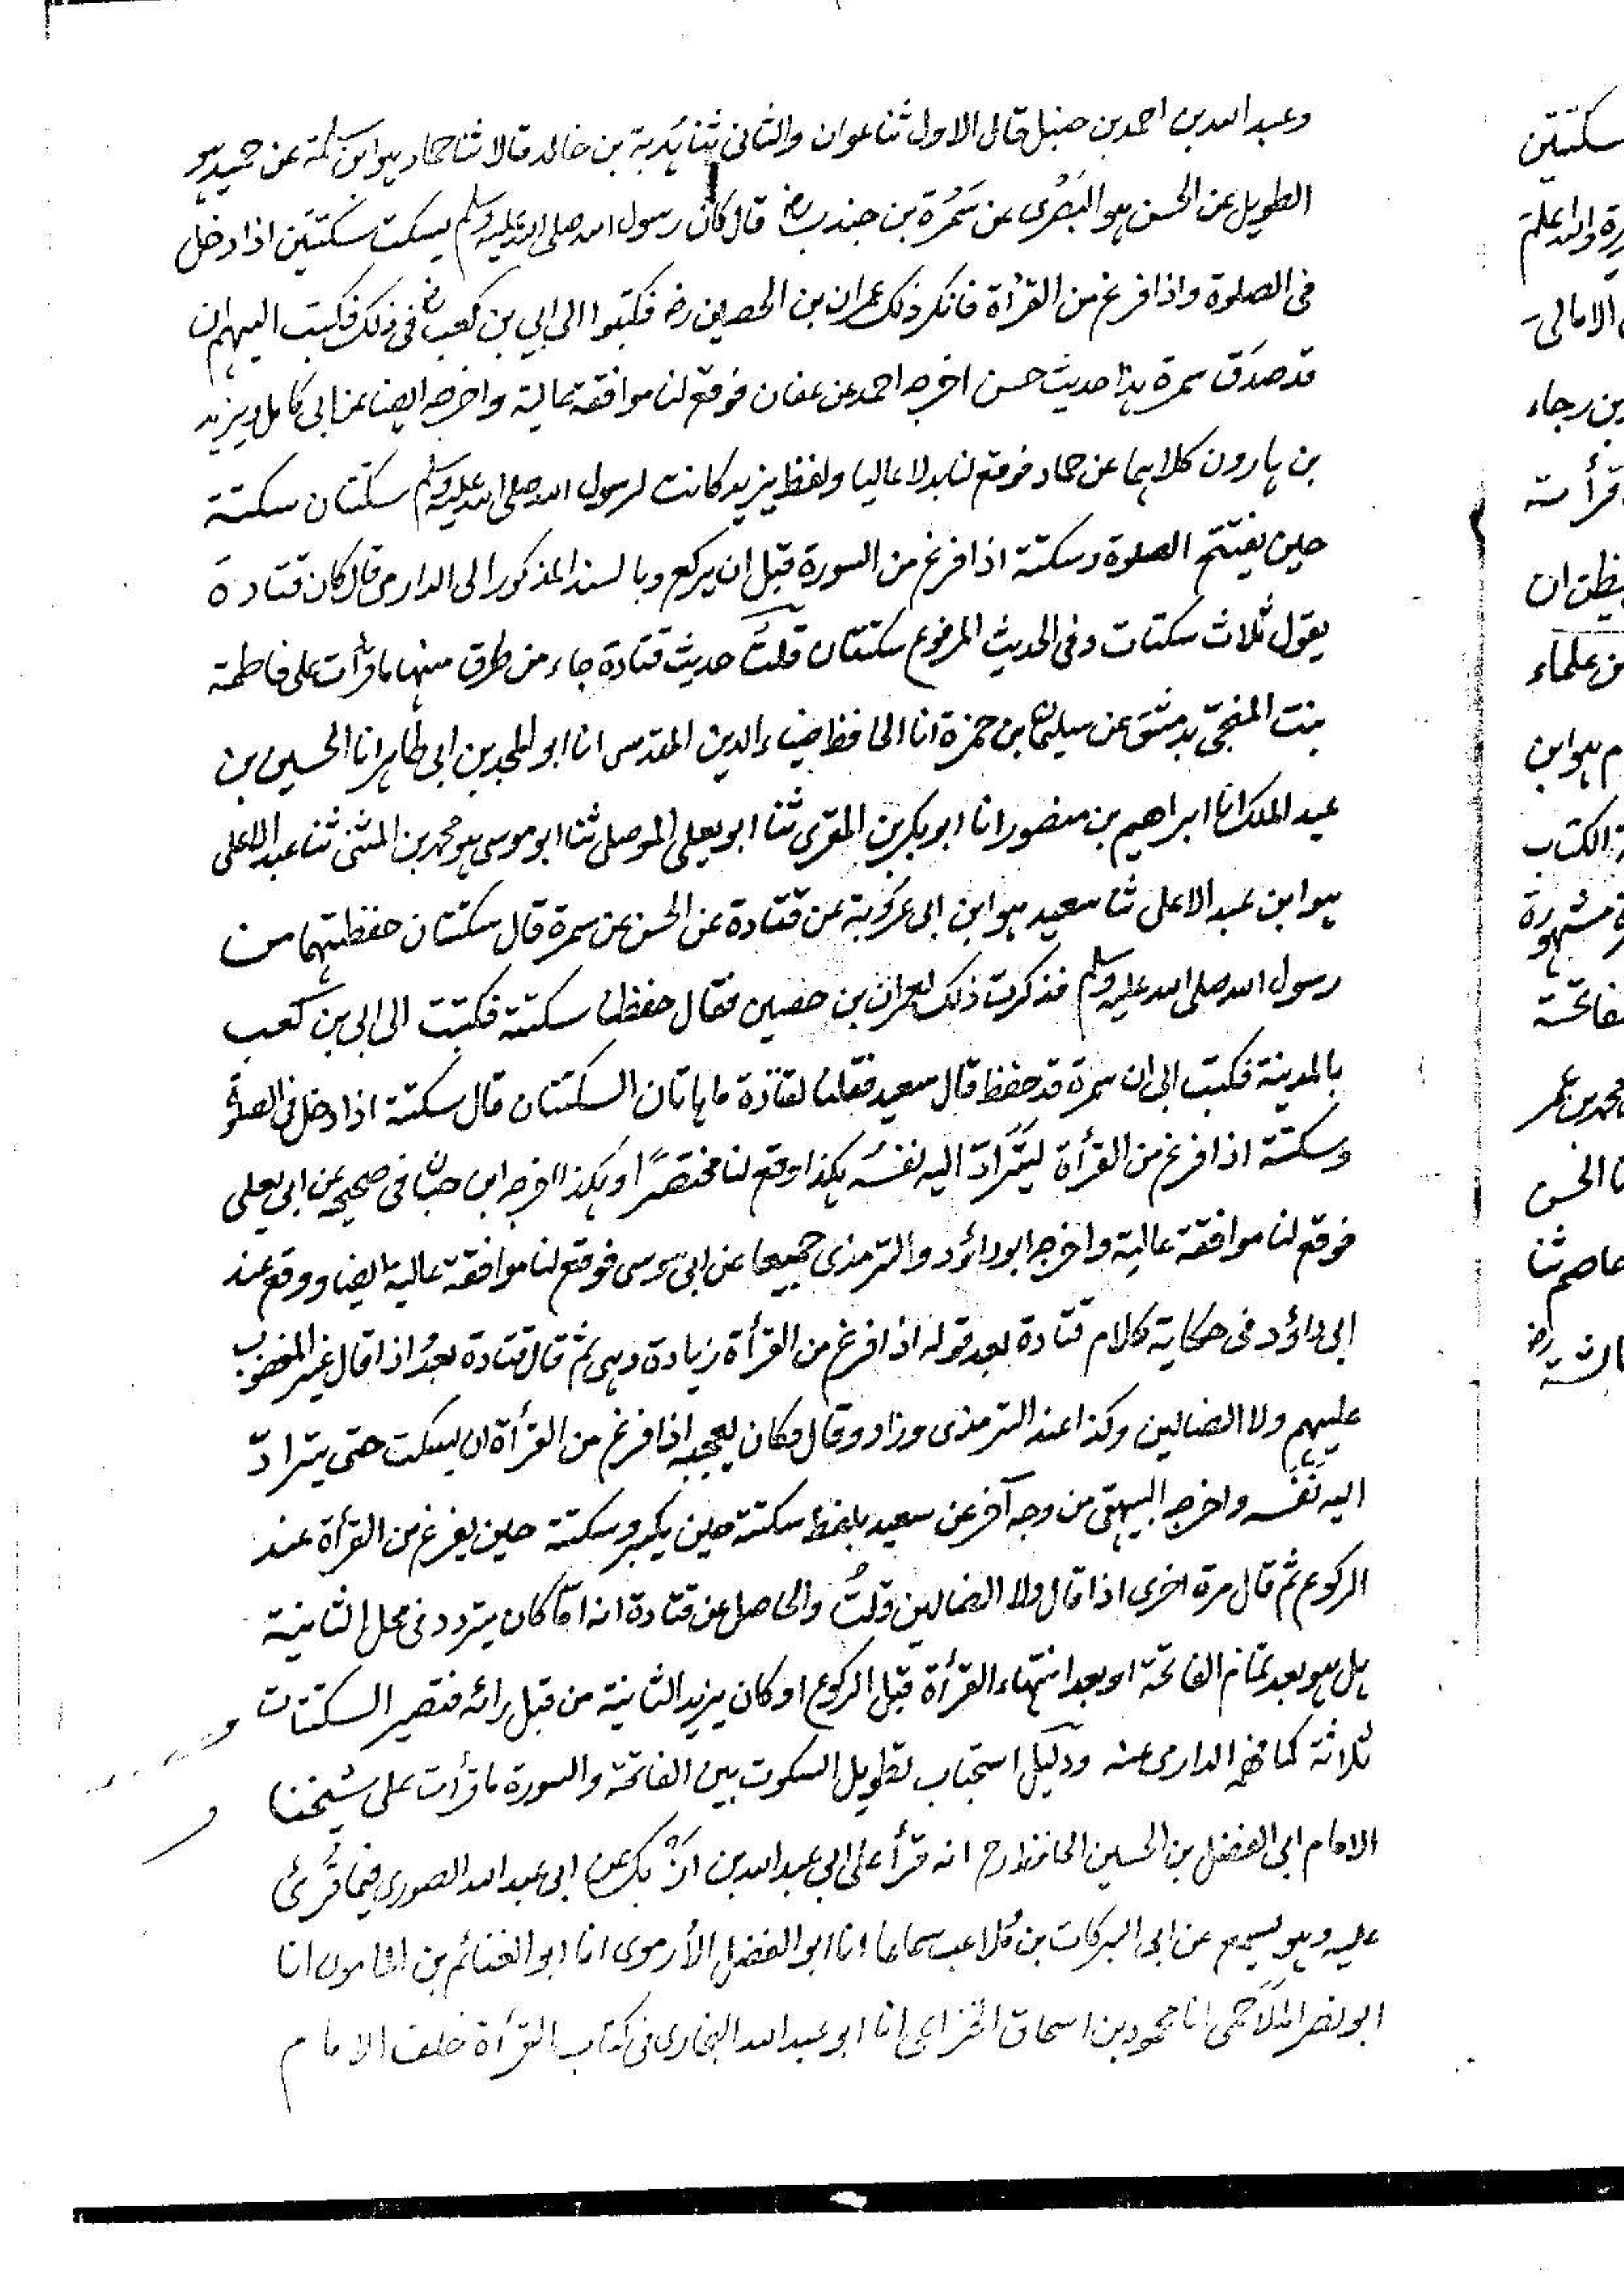 وعبد الله بن احمد بن حنبل قال الاول ثنا عفان والثانى ثنا هُدبة بن خالد قالا ثنا حماد هو ابن سلمة عن حميد هو
الطويل عن الحسن هو البَصْرى عن سَمُرَة بن جندب رض قال كان رسول الله صلى الله عليه وسلم يسكت سكتتين اذا دخل
فى الصلوة واذا فرغ من القرأة فانكر ذلك عمران بن الحصين رض فكتبوا الى ابي بن كعب رض فى ذلك فكتب اليهم ان
قد صدَق سمرة هذا حديث حسن اخرجه احمد عن عفان فوقع لنا موافقة عالية واخرجه ايضا عن ابى كامل ويزيد
بن هارون كلاهما عن حماد فوقع لنا بدلا عاليا ولفظ يزيد كانت لرسول الله صلى الله عليه وسلم سكتتان سكتة
حين يفتتح الصلوة وسكتة اذا فرغ من السورة قبل ان يركع وبالسند المذكور الى الدارمى قال كان قتادة
يقول ثلاث سكتات وفى الحديث المرفوع سكتتان قلتُ حديث قتادة جاء من طرق منها ما قرأت على فاطمة
بنت المنجّى بدمشق عن سليمان بن حمزة انا الحافظ ضياء الدين المقدسى انا ابو المجد بن ابى طاهر انا الحسين بن
عبد الملك انا ابراهيم بن منصور انا ابو بكر بن المقرى ثنا ابو يعلى الموصلى ثنا ابو موسى هو محمد بن المثنى ثنا عبد الاعلى
هو ابن عبد الاعلى ثنا سعيد هو ابن ابى عَرُوبة عن قتادة عن الحسن عن سمرة قال سكتتان حفظتهما من
رسول الله صلى الله عليه وسلم فذكرت ذلك لعمران بن حصين فقال حفظنا سكتة فكتبت الى ابى بن كعب
بالمدينة فكتب الى ان سمرة قد حفظ قال سعيد فقلنا لقتادة ما هاتان السكتتان قال سكتة اذا دخل فى الصلوة
وسكتة اذا فرغ من القرأة ليَتَرادّ اليه نفسُه هكذا وقع لنا مختصرًا وهكذا اخرجه ابن حبان فى صحيحه عن ابى يعلى
فوقع لنا موافقة عالية واخرجه ابو داؤد والترمذى جميعا عن ابى موسى فوقع لنا موافقة عالية ايضا ووقع عند
ابى داؤد فى حكاية كلام قتادة بعد قوله اذا فرغ من القرأة زيادة وهى ثم قال قتادة بعدُ اذا قال غير المغضوب
عليهم ولا الضالين وكذا عند الترمذى وزاد وقال وكان يعجبه اذا فرغ من القرأة ان يسكت حتى يترادّ
اليه نَفَسه واخرجه البيهقى من وجه آخر عن سعيد بلفظ سكتة حين يكبر وسكتة حين يفرغ من القرأة عند
الركوع ثم قال مرة اخرى اذا قال ولا الضالين قلتُ والحاصل عن قتادة انه امّا كان يتردد فى محل الثانية
هل هو بعد تمام الفاتحة او بعد انتهاء القرأة قبل الركوع او كان يزيد الثانية من قبل رائه فتصير السكتات
ثلاثة كما فهمه الدارمى عنه ودليل استحباب تطويل السكوت بين الفاتحة والسورة ما قرأت على شيخنا
الامام ابى الفضل بن الحسين الحافظ رح انه قرأ على ابي عبد الله بن ازْبك عن ابى عبد الله الصورى فيما قُرئ
عليه وهو يسمع عن ابى البركات بن مُلاعب سماعا انا ابو الفضل الأرموى انا ابو الغنائم بن المامون انا
ابو نصر المَلَاحمى انا محمود بن اسحاق الخزاعى انا ابو عبد الله البخارى فى كتاب القرأة خلف الامام
سكتتين
رة والله اعلم
الامالى
بن رجاء
قرأته
يظن ان
من علماء
م هو ابن
ة الكتاب
ة مشهورة
لفاتحة
محمد بن عمر
نا الحسن
عاصم ثنا
عائشة رض